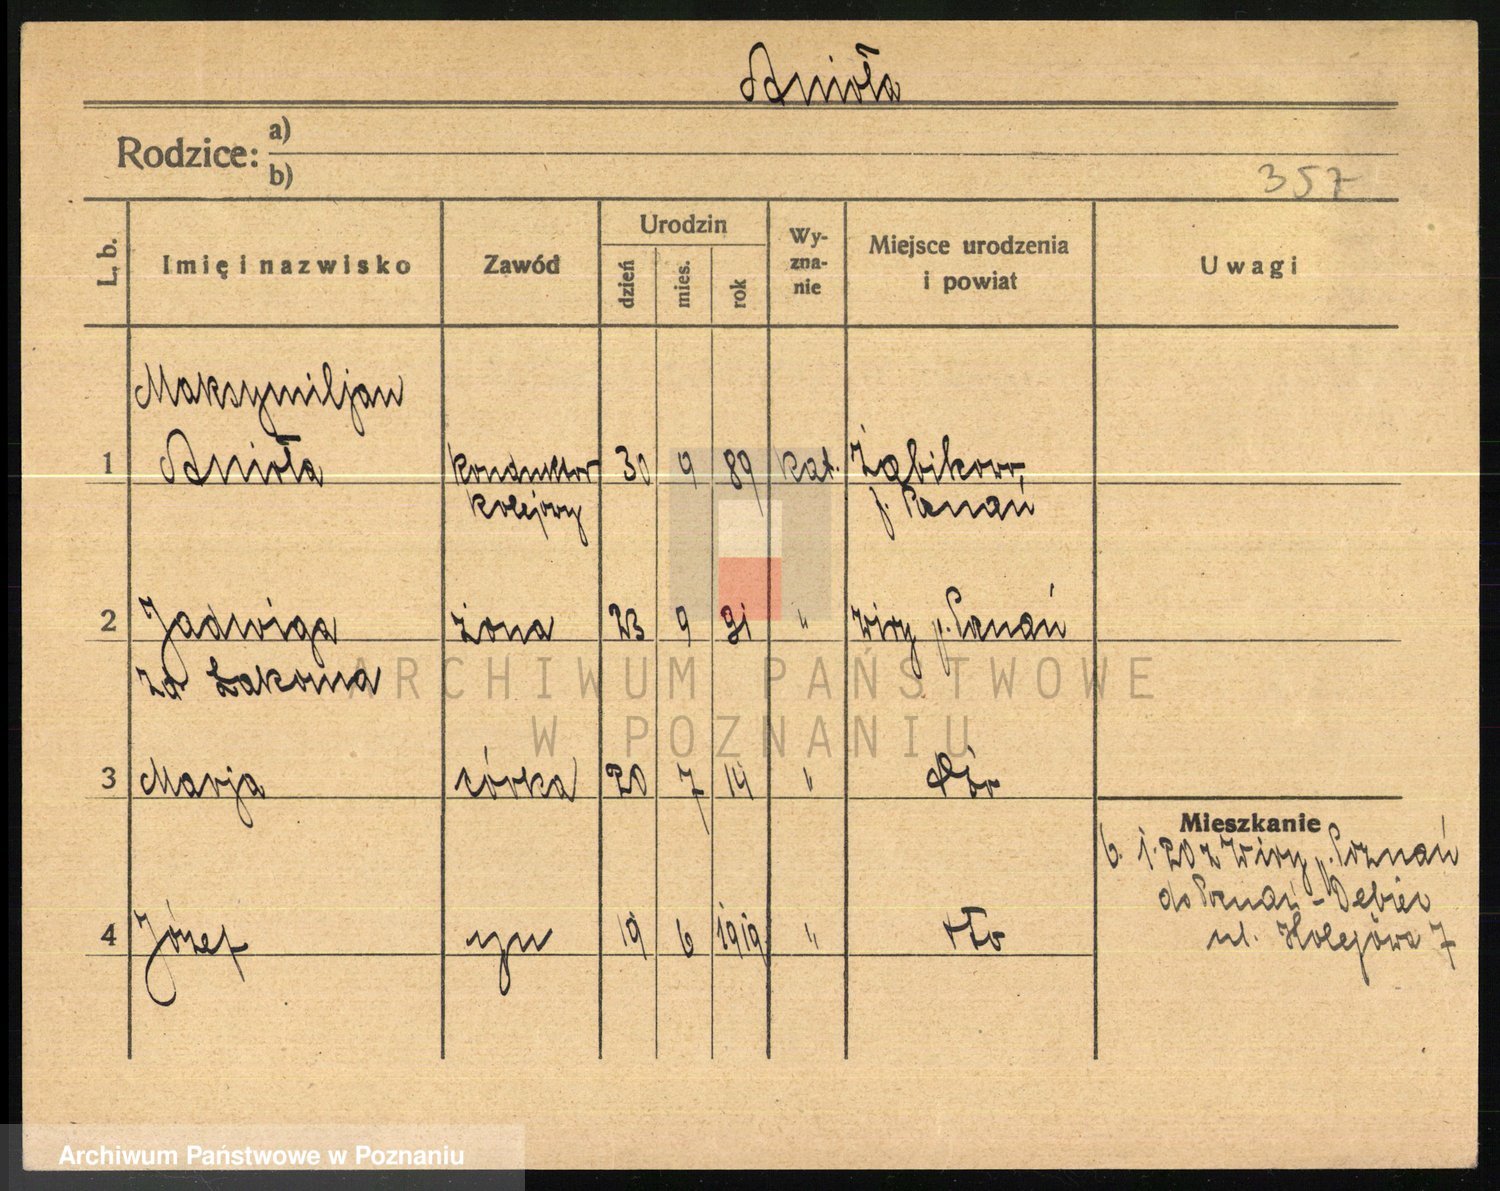 Anioła
Rodzice:
a)
b)
357
L. b.
Imię i nazwisko
Zawód
Urodzin
dzień
mies.
rok
Wy-
zna-
nie
Miejsce urodzenia
i powiat
Uwagi
Maksymiljan
1 Anioła konduktor 30 9 89 kat. Żabikowo,
kolejowy p. Poznań
2 Jadwiga żona 23 9 91 " Wiry p. Poznań
zd Łakoma
ARCHIWUM PAŃSTWOWE
W POZNANIU
3 Marja córka 20 7 14 "
Mieszkanie
6. 1. 20 z Wiry p. Poznań
do Poznań-Dębiec
ul. Kolejowa 7
4 Józef syn 19 6 1919 "
Archiwum Państwowe w Poznaniu